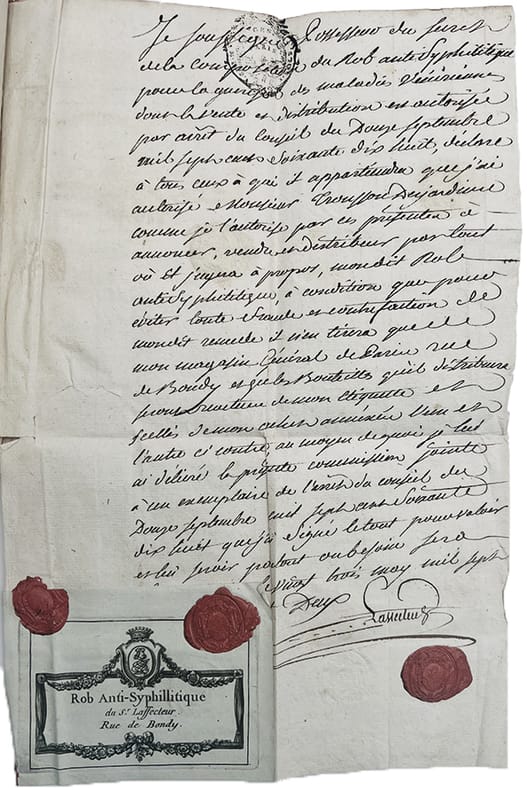 Je soussigné Possesseur du secret
de la composition du Rob antisyphilitique
pour la guerison des maladies Vénériennes
dont la Vente et distribution est autorisée
par arrêt du Conseil du Douze septembre
mil sept cens soixante dix huit, déclare
à tous ceux à qui il appartiendra que j'ai
autorisé Monsieur Trousson Dujardin
comme je l'autorise par ces présentes à
annoncer, vendre et distribuer partout
où il jugera à propos, mondit Rob
antisyphilitique, à condition que pour
éviter toute fraude et contrefaction de
mondit remede il n'en tirera que de
mon magasin Général de Paris rue
de Bondy et que les Bouteilles qu'il distribuera
seront de mon etiquette et
scellés de mon cachet l'un et
l'autre ci contre, au moyen de quoi je lui
ai délivré la présente commission jointe
à un exemplaire de l'arrêt du conseil du
Douze septembre mil sept cent soixante
dix huit que j'ai signé le tout pour valoir
et lui servir partout où besoin sera
vingt trois may mil sept
Deux
Laffecteur
Rob Anti-Syphillitique
du Sr. Laffecteur.
Rue de Bondy.